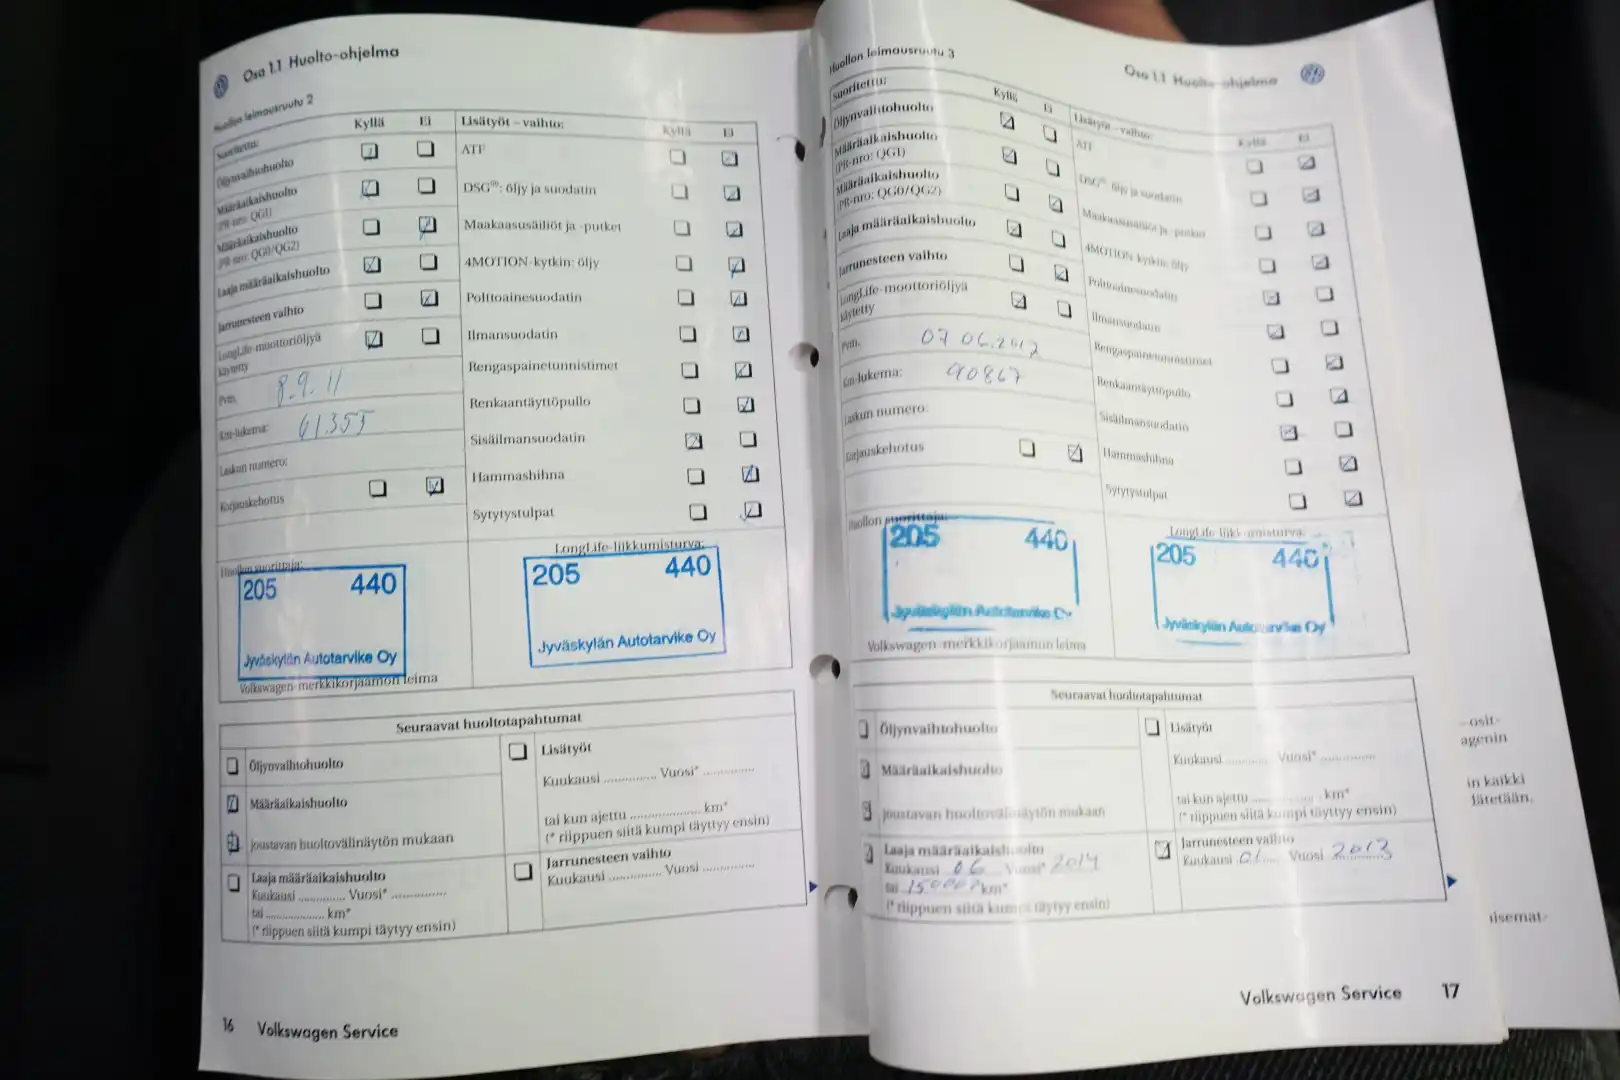 Osa 1.1 Huolto-ohjelma
Huollon leimausruutu 2
Suoritettu:
Kyllä Ei
Öljynvaihtohuolto
Määräaikaishuolto
(PR-nro: QG1)
Määräaikaishuolto
(PR-nro: QG0/QG2)
Laaja määräaikaishuolto
Jarrunesteen vaihto
LongLife-moottoriöljyä
käytetty
Pvm. 8.9.11
Km-lukema: 61.355
Laskun numero:
Korjauskehotus
Lisätyöt – vaihto: Kyllä Ei
ATF
DSG®: öljy ja suodatin
Maakaasusäiliöt ja -putket
4MOTION-kytkin: öljy
Polttoainesuodatin
Ilmansuodatin
Rengaspainetunnistimet
Renkaantäyttöpullo
Sisäilmansuodatin
Hammashihna
Sytytystulpat
Huollon suorittaja:
205 440
Jyväskylän Autotarvike Oy
Volkswagen-merkkikorjaamon leima
LongLife-liikkumisturva:
205 440
Jyväskylän Autotarvike Oy
Seuraavat huoltotapahtumat
Öljynvaihtohuolto
Määräaikaishuolto
joustavan huoltovälinäytön mukaan
Laaja määräaikaishuolto
Kuukausi .............. Vuosi* ................
tai .................. km*
(* riippuen siitä kumpi täytyy ensin)
Lisätyöt
Kuukausi .............. Vuosi* ..............
tai kun ajettu ................... km*
(* riippuen siitä kumpi täyttyy ensin)
Jarrunesteen vaihto
Kuukausi .............. Vuosi ..............
16 Volkswagen Service
Osa 1.1 Huolto-ohjelma
Huollon leimausruutu 3
Suoritettu:
Kyllä Ei
Öljynvaihtohuolto
Määräaikaishuolto
(PR-nro: QG1)
Määräaikaishuolto
(PR-nro: QG0/QG2)
Laaja määräaikaishuolto
Jarrunesteen vaihto
LongLife-moottoriöljyä
käytetty
Pvm. 07 06.2012
Km-lukema: 90867
Laskun numero:
Korjauskehotus
Lisätyöt – vaihto: Kyllä Ei
ATF
DSG®: öljy ja suodatin
Maakaasusäiliöt ja -putket
4MOTION-kytkin: öljy
Polttoainesuodatin
Ilmansuodatin
Rengaspainetunnistimet
Renkaantäyttöpullo
Sisäilmansuodatin
Hammashihna
Sytytystulpat
Huollon suorittaja:
205 440
Jyväskylän Autotarvike Oy
Volkswagen-merkkikorjaamon leima
LongLife-liikkumisturva:
205 440
Jyväskylän Autotarvike Oy
Seuraavat huoltotapahtumat
Öljynvaihtohuolto
Määräaikaishuolto
joustavan huoltovälinäytön mukaan
Laaja määräaikaishuolto
Kuukausi 06 Vuosi* 2014
tai 150000 km*
(* riippuen siitä kumpi täytyy ensin)
Lisätyöt
Kuukausi ............ Vuosi* ..............
tai kun ajettu ................... km*
(* riippuen siitä kumpi täyttyy ensin)
Jarrunesteen vaihto
Kuukausi 01 Vuosi 2013
Volkswagen Service 17
-osit-
agenin
in kaikki
jätetään.